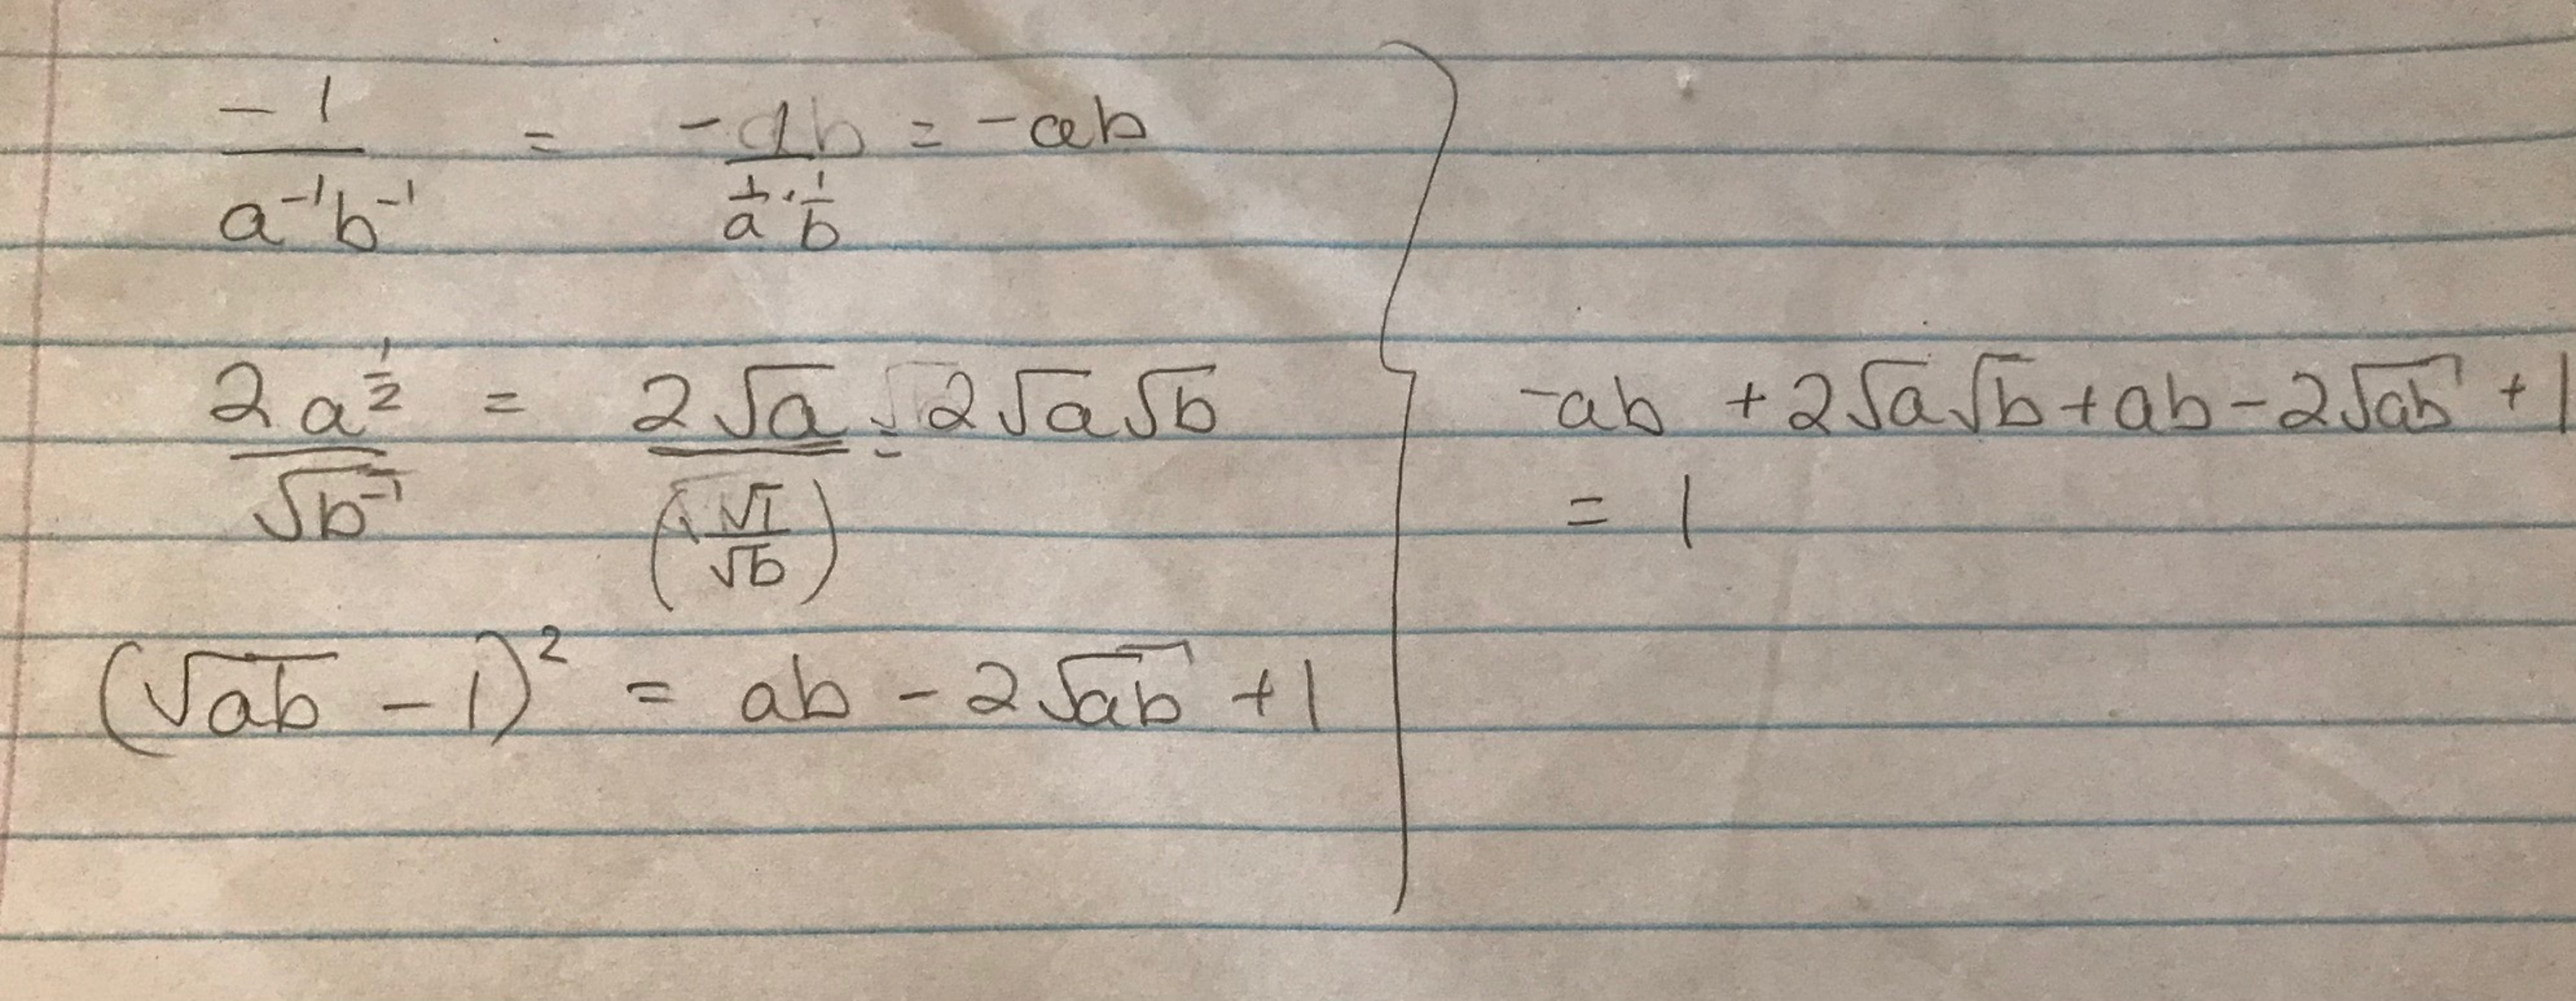 -1/(a⁻¹b⁻¹) = -1/(1/a · 1/b) = -ab
2a^(1/2)/√(b⁻¹) = 2√a/(√1/√b) = 2√a√b
(√ab - 1)² = ab - 2√ab + 1
-ab + 2√a√b + ab - 2√ab + 1
= 1